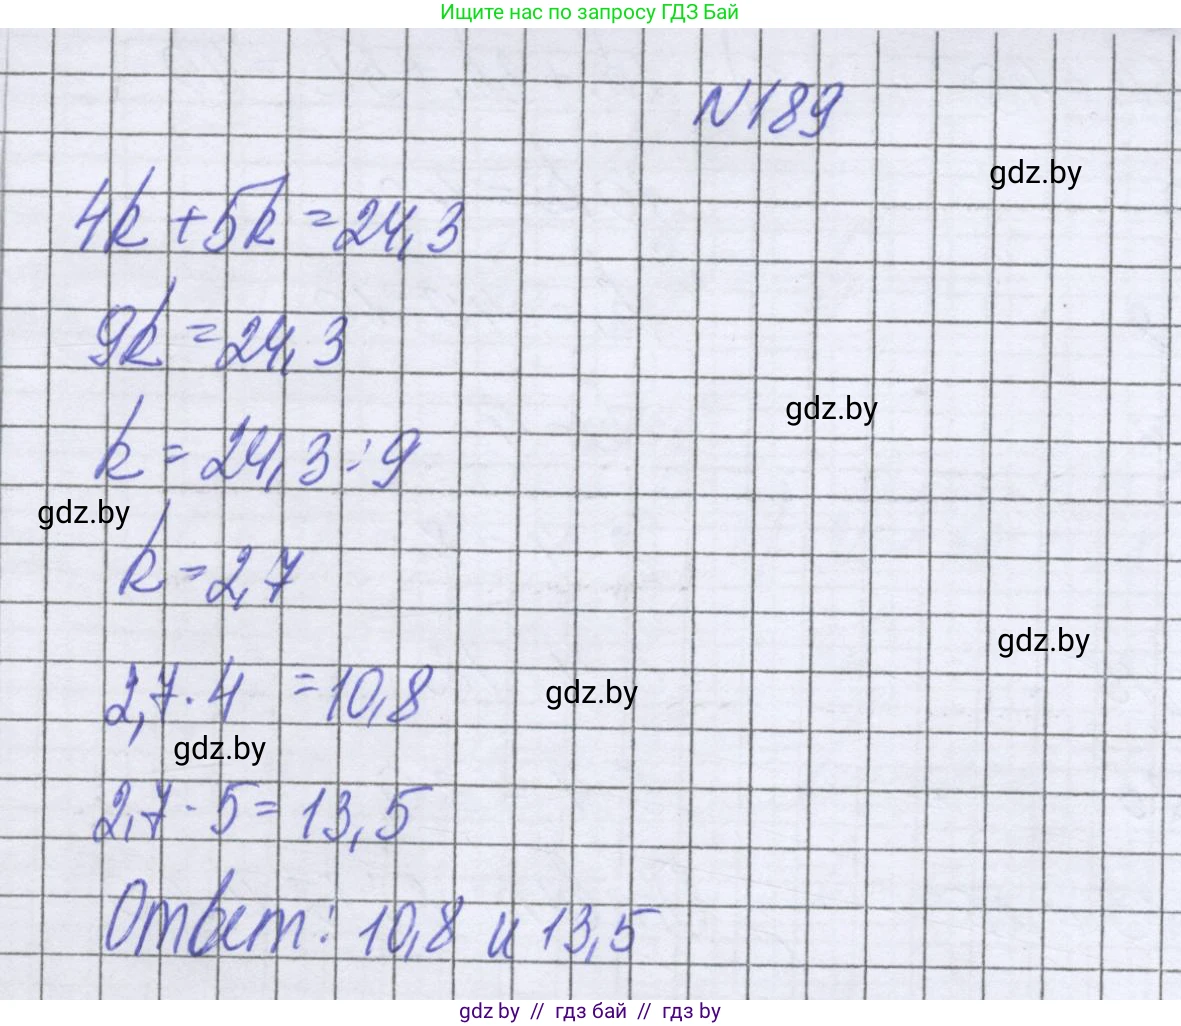 Ищите нас по запросу ГДЗ Бай
N189
gdz.by
4k + 5k = 24,3
9k = 24,3
gdz.by
k = 24,3 : 9
gdz.by
k = 2,7
gdz.by
2,7 · 4 = 10,8
gdz.by
gdz.by
2,7 · 5 = 13,5
Ответ: 10,8 и 13,5
gdz.by // гдз бай // гдз by